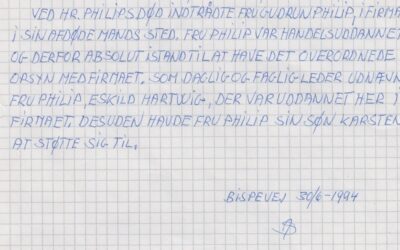 VED HR. PHILIPS DØD INDTRÅDTE FRU GUDRUN PHILIP, I FIRMA
I SIN AFDØDE MANDS STED. FRU PHILIP VAR HANDELSUDDANNET
OG DERFOR ABSOLUT ISTAND TIL AT HAVE DET OVERORDNEDE
OPSYN MED FIRMAET. SOM DAGLIG OG FAGLIG LEDER UDNÆVN
FRU PHILIP, ESKILD HARTWIG, DER VAR UDDANNET HER I
FIRMAET. DESUDEN HAVDE FRU PHILIP SIN SØN KARSTEN
AT STØTTE SIG TIL.
BISPEVEJ 30/6-1994